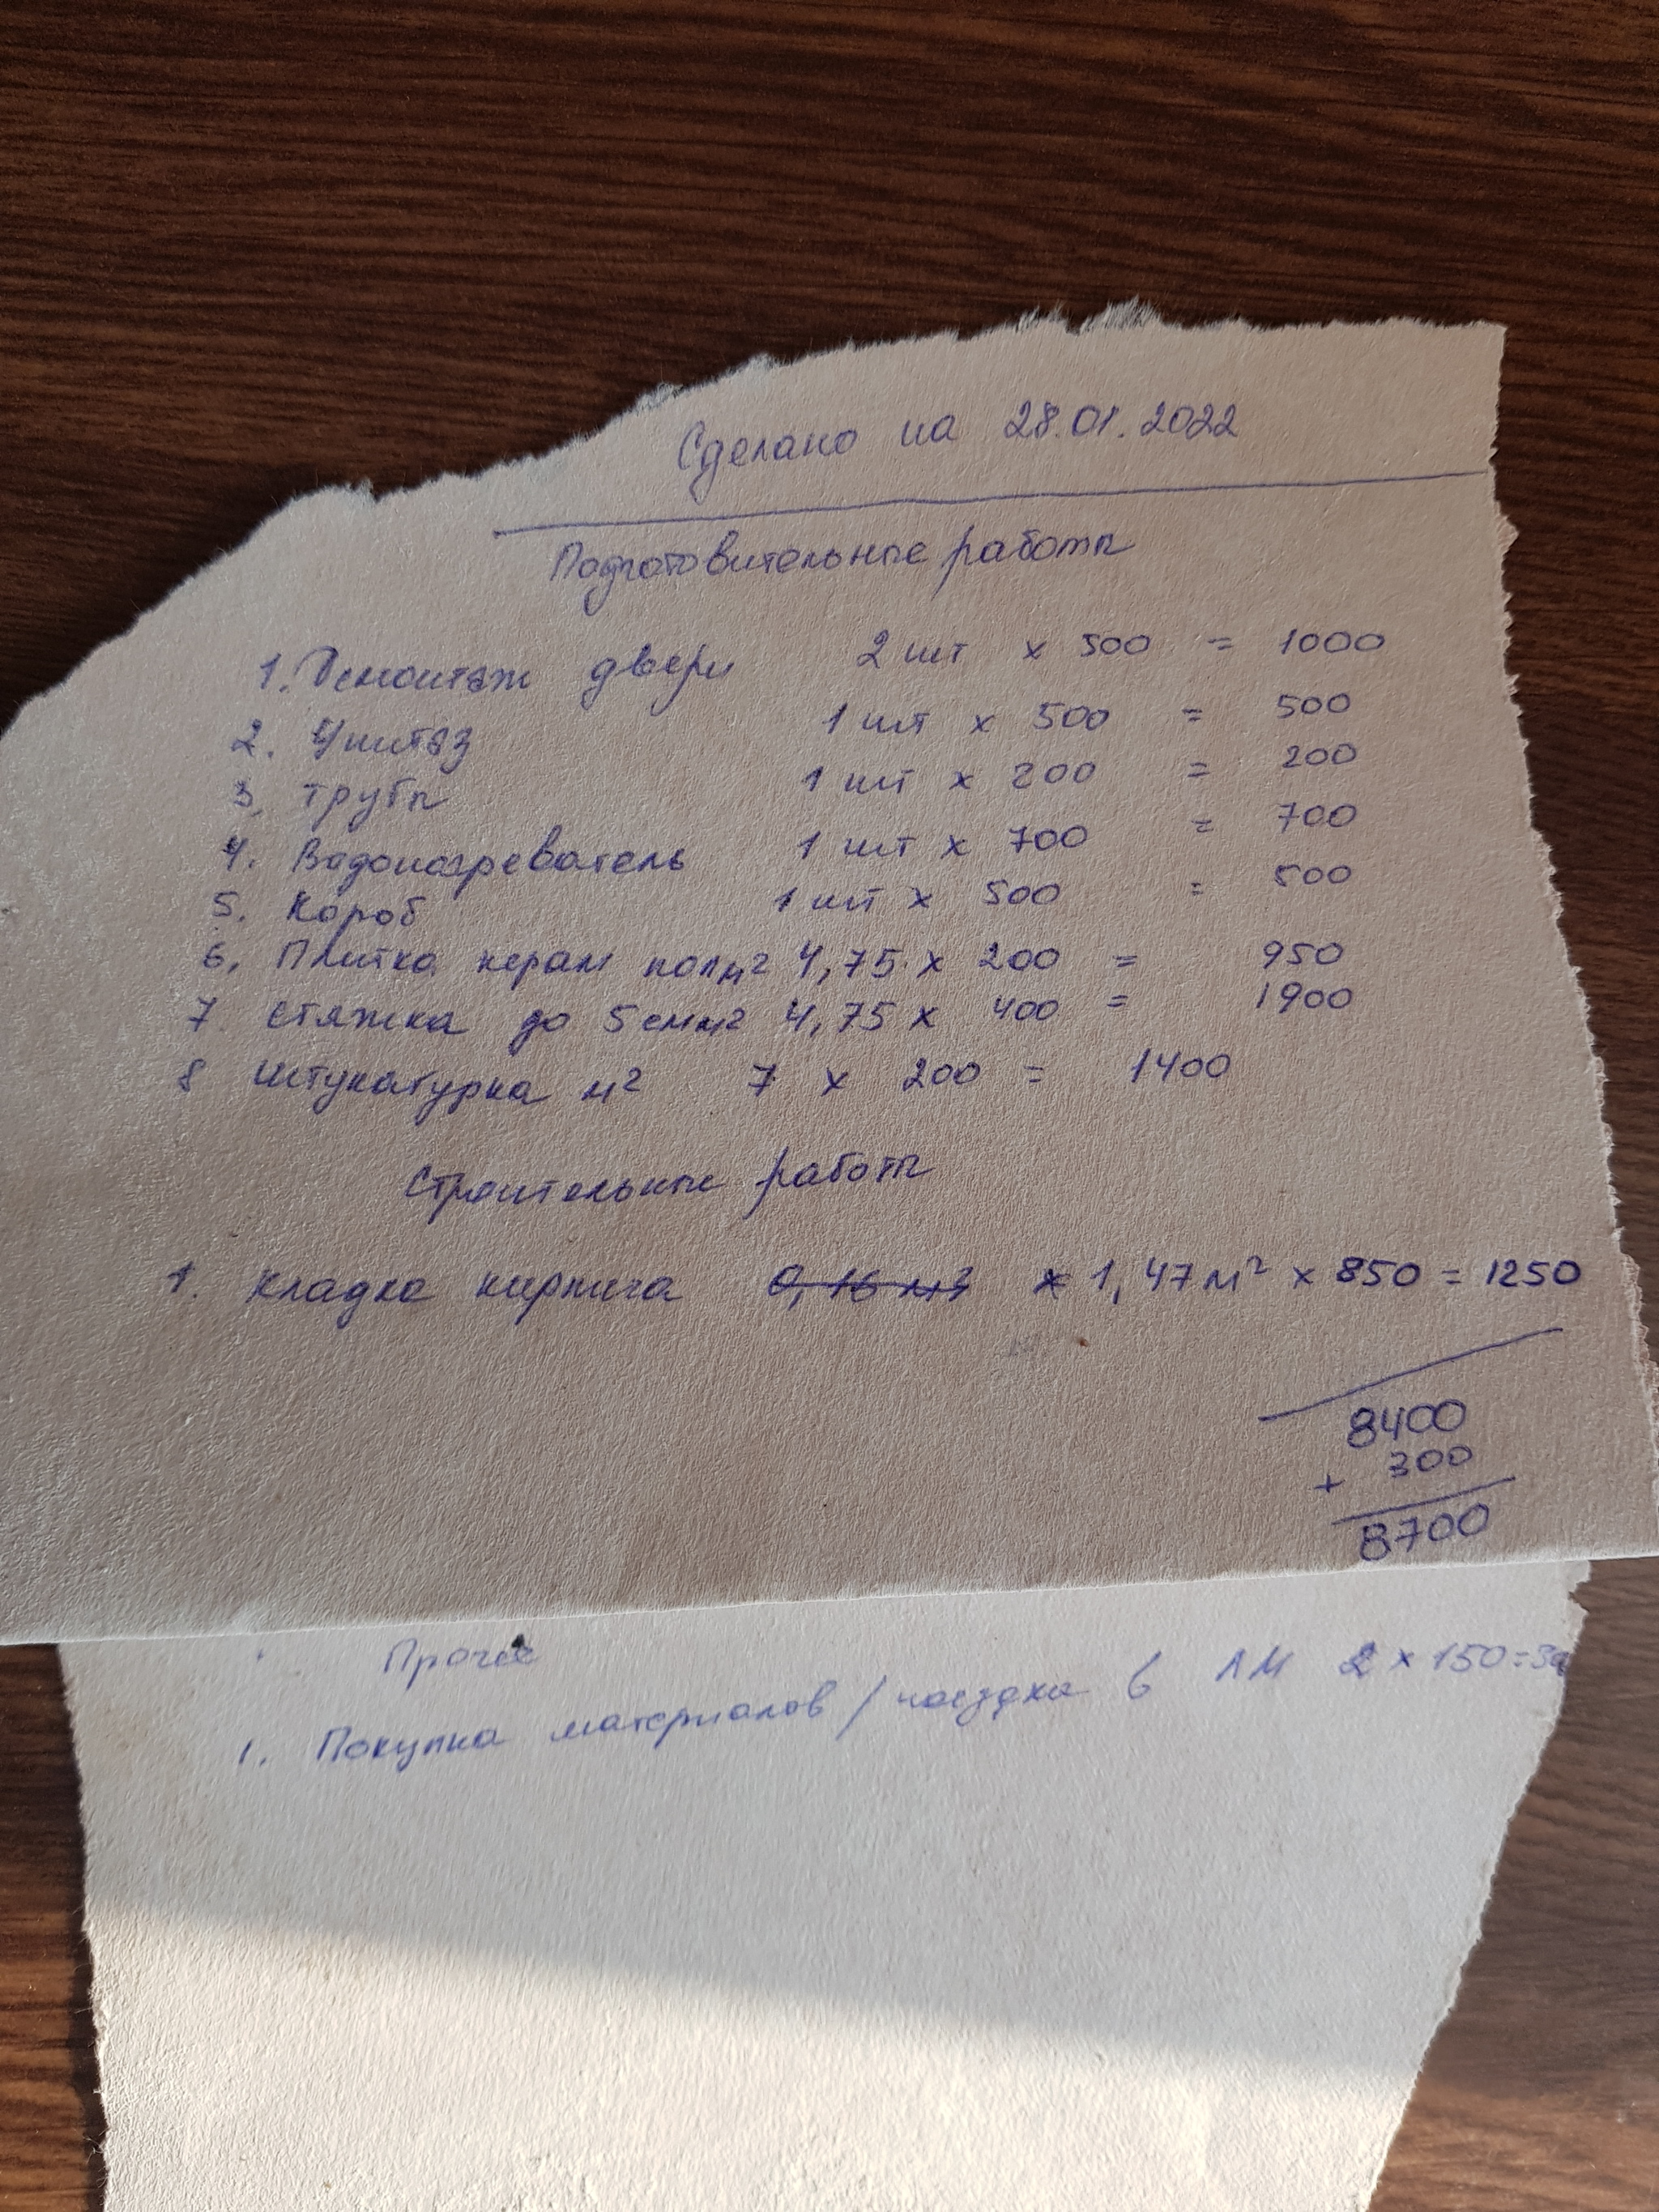 Сделано на 28.01.2022
Подготовительные работы
1. Демонтаж двери 2 шт x 500 = 1000
2. Унитаз 1 шт x 500 = 500
3. трубы 1 шт x 200 = 200
4. Водонагреватель 1 шт x 700 = 700
5. Короб 1 шт x 500 = 500
6. Плитка керам пол м² 4,75 x 200 = 950
7 стяжка до 5 см м² 4,75 x 400 = 1900
8 штукатурка м² 7 x 200 = 1400
Строительные работы
1. кладка кирпича 0,16 м3 x 1,47 м² x 850 = 1250
8400
+ 300
8700
Прочее
1. Покупка материалов / поездка в ЛМ 2 x 150 =